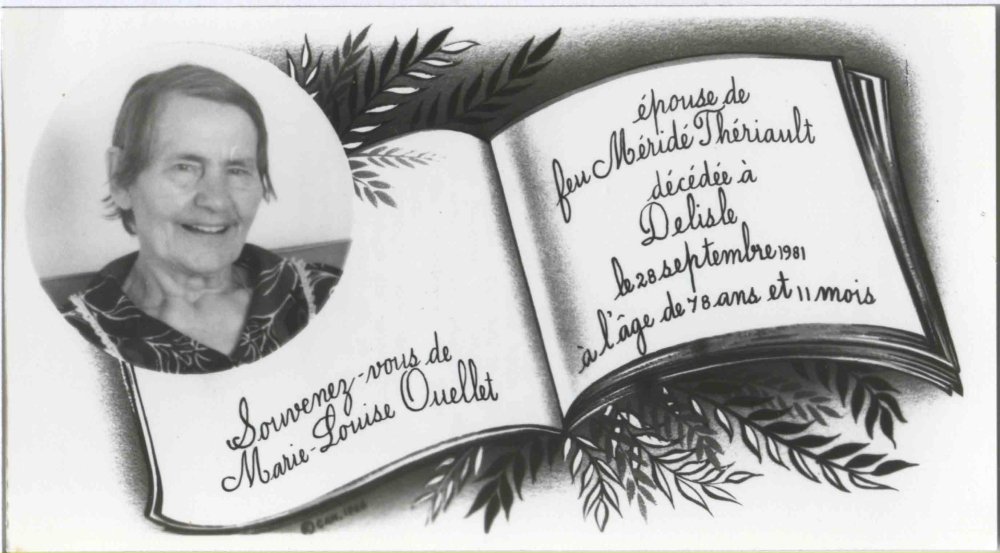 Souvenez-vous de
Marie-Louise Ouellet
épouse de
feu Méridé Thériault
décédée à
Delisle
le 28 septembre 1981
à l'âge de 78 ans et 11 mois